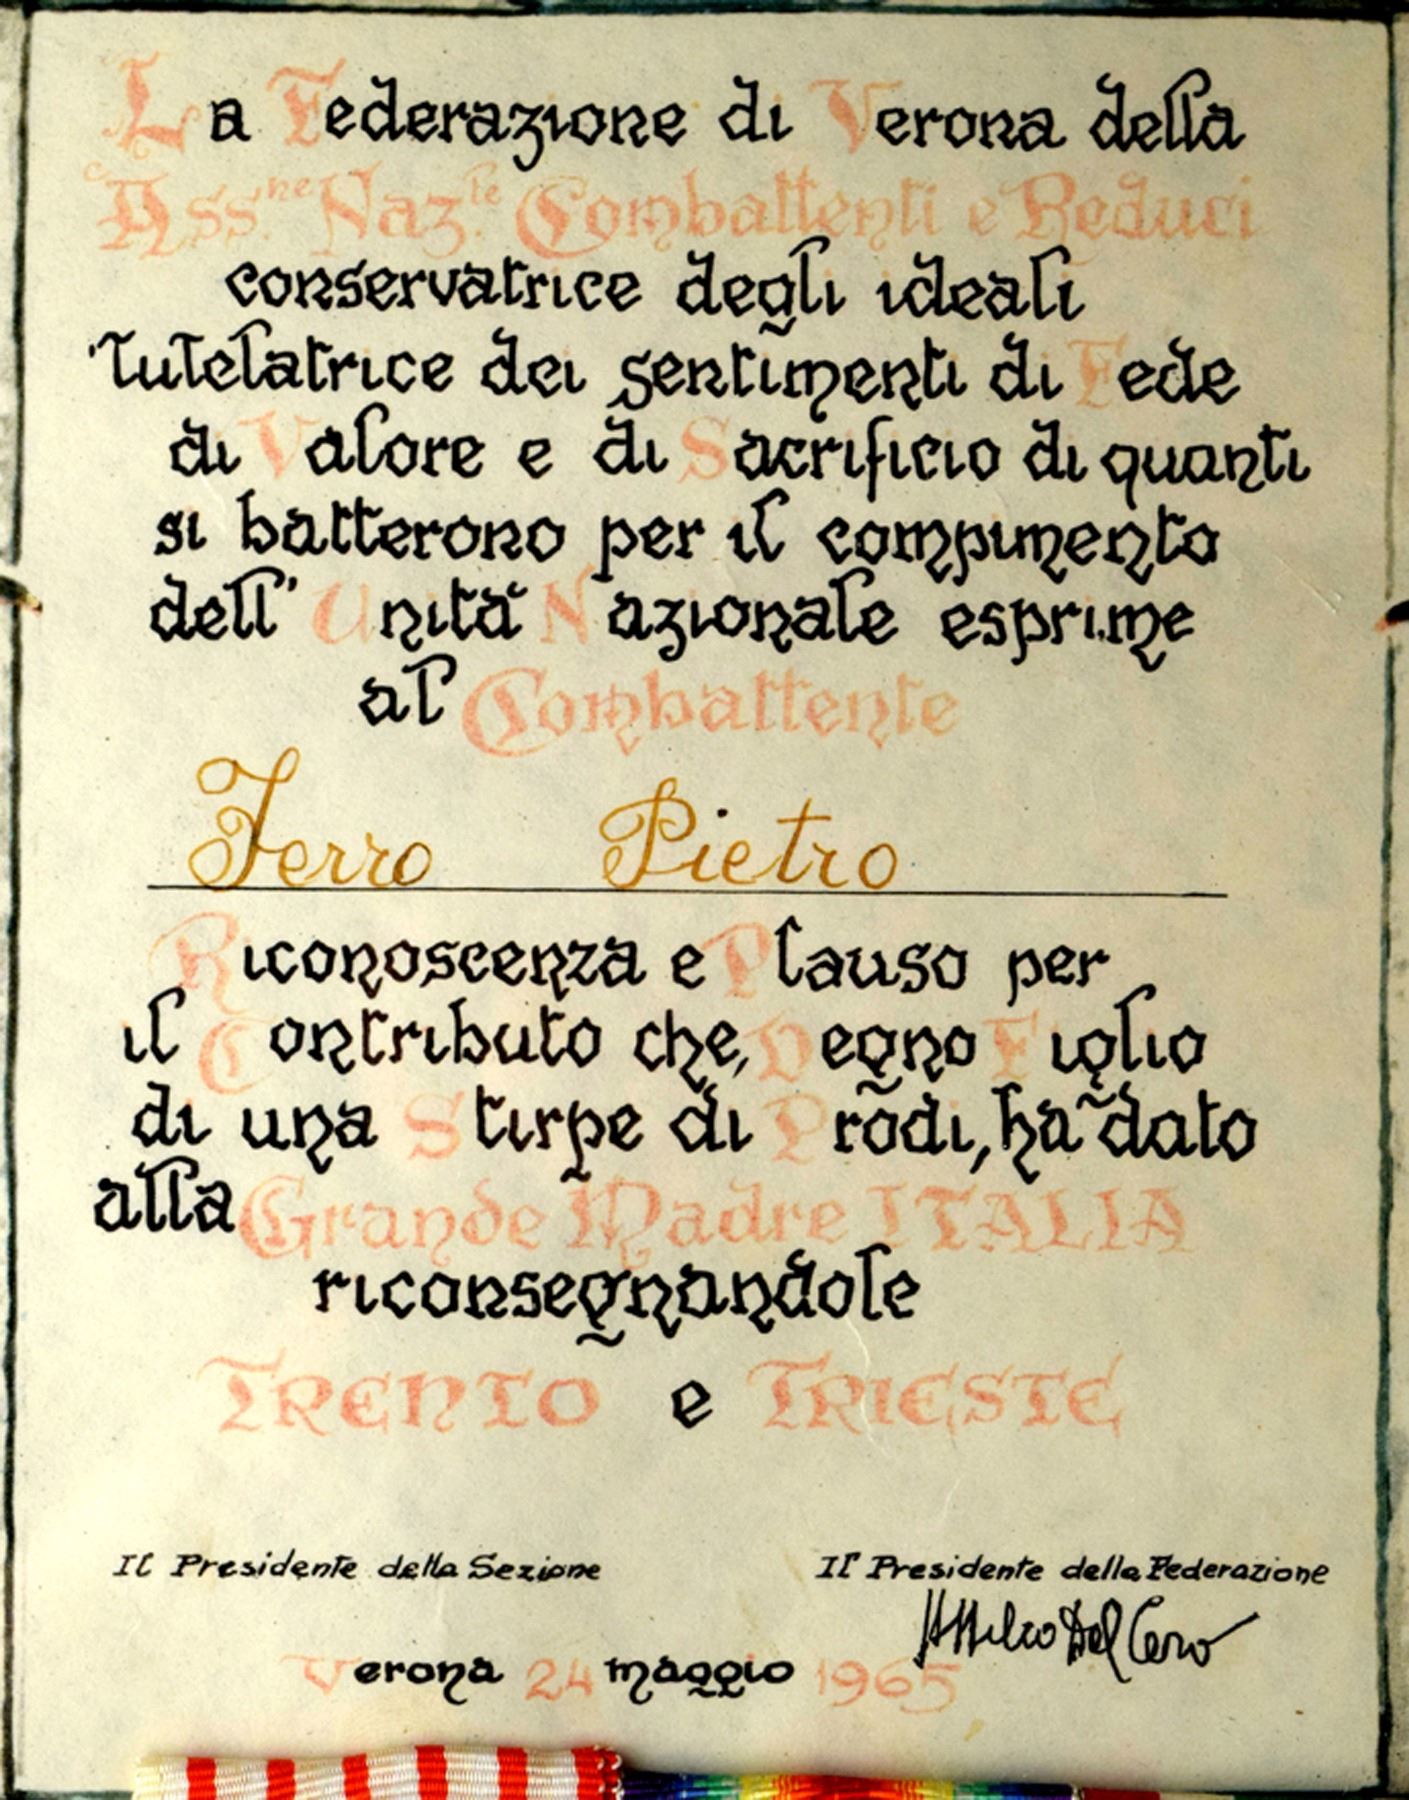 La Federazione di Verona della
Ass.ne Naz.le Combattenti e Reduci
conservatrice degli ideali
tutelatrice dei sentimenti di Fede
di Valore e di Sacrificio di quanti
si batterono per il compimento
dell' Unità Nazionale esprime
al Combattente
Ferro Pietro
Riconoscenza e Plauso per
il Contributo che, Degno Figlio
di una Stirpe di Prodi, ha dato
alla Grande Madre ITALIA
riconsegnandole
TRENTO e TRIESTE
Il Presidente della Sezione
Il Presidente della Federazione
Attilio Dal Cero
Verona 24 maggio 1965